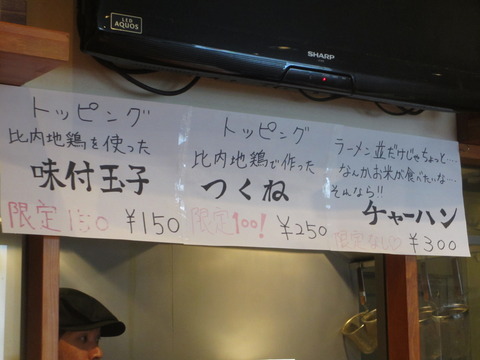 LED
AQUOS
SHARP
トッピング
比内地鶏を使った
味付玉子
限定150 ¥150
トッピング
比内地鶏で作った
つくね
限定100! ¥250
ラーメン並だけじゃちょっと…
なんかお米が食べたいな…
そんなら!!
チャーハン
¥300